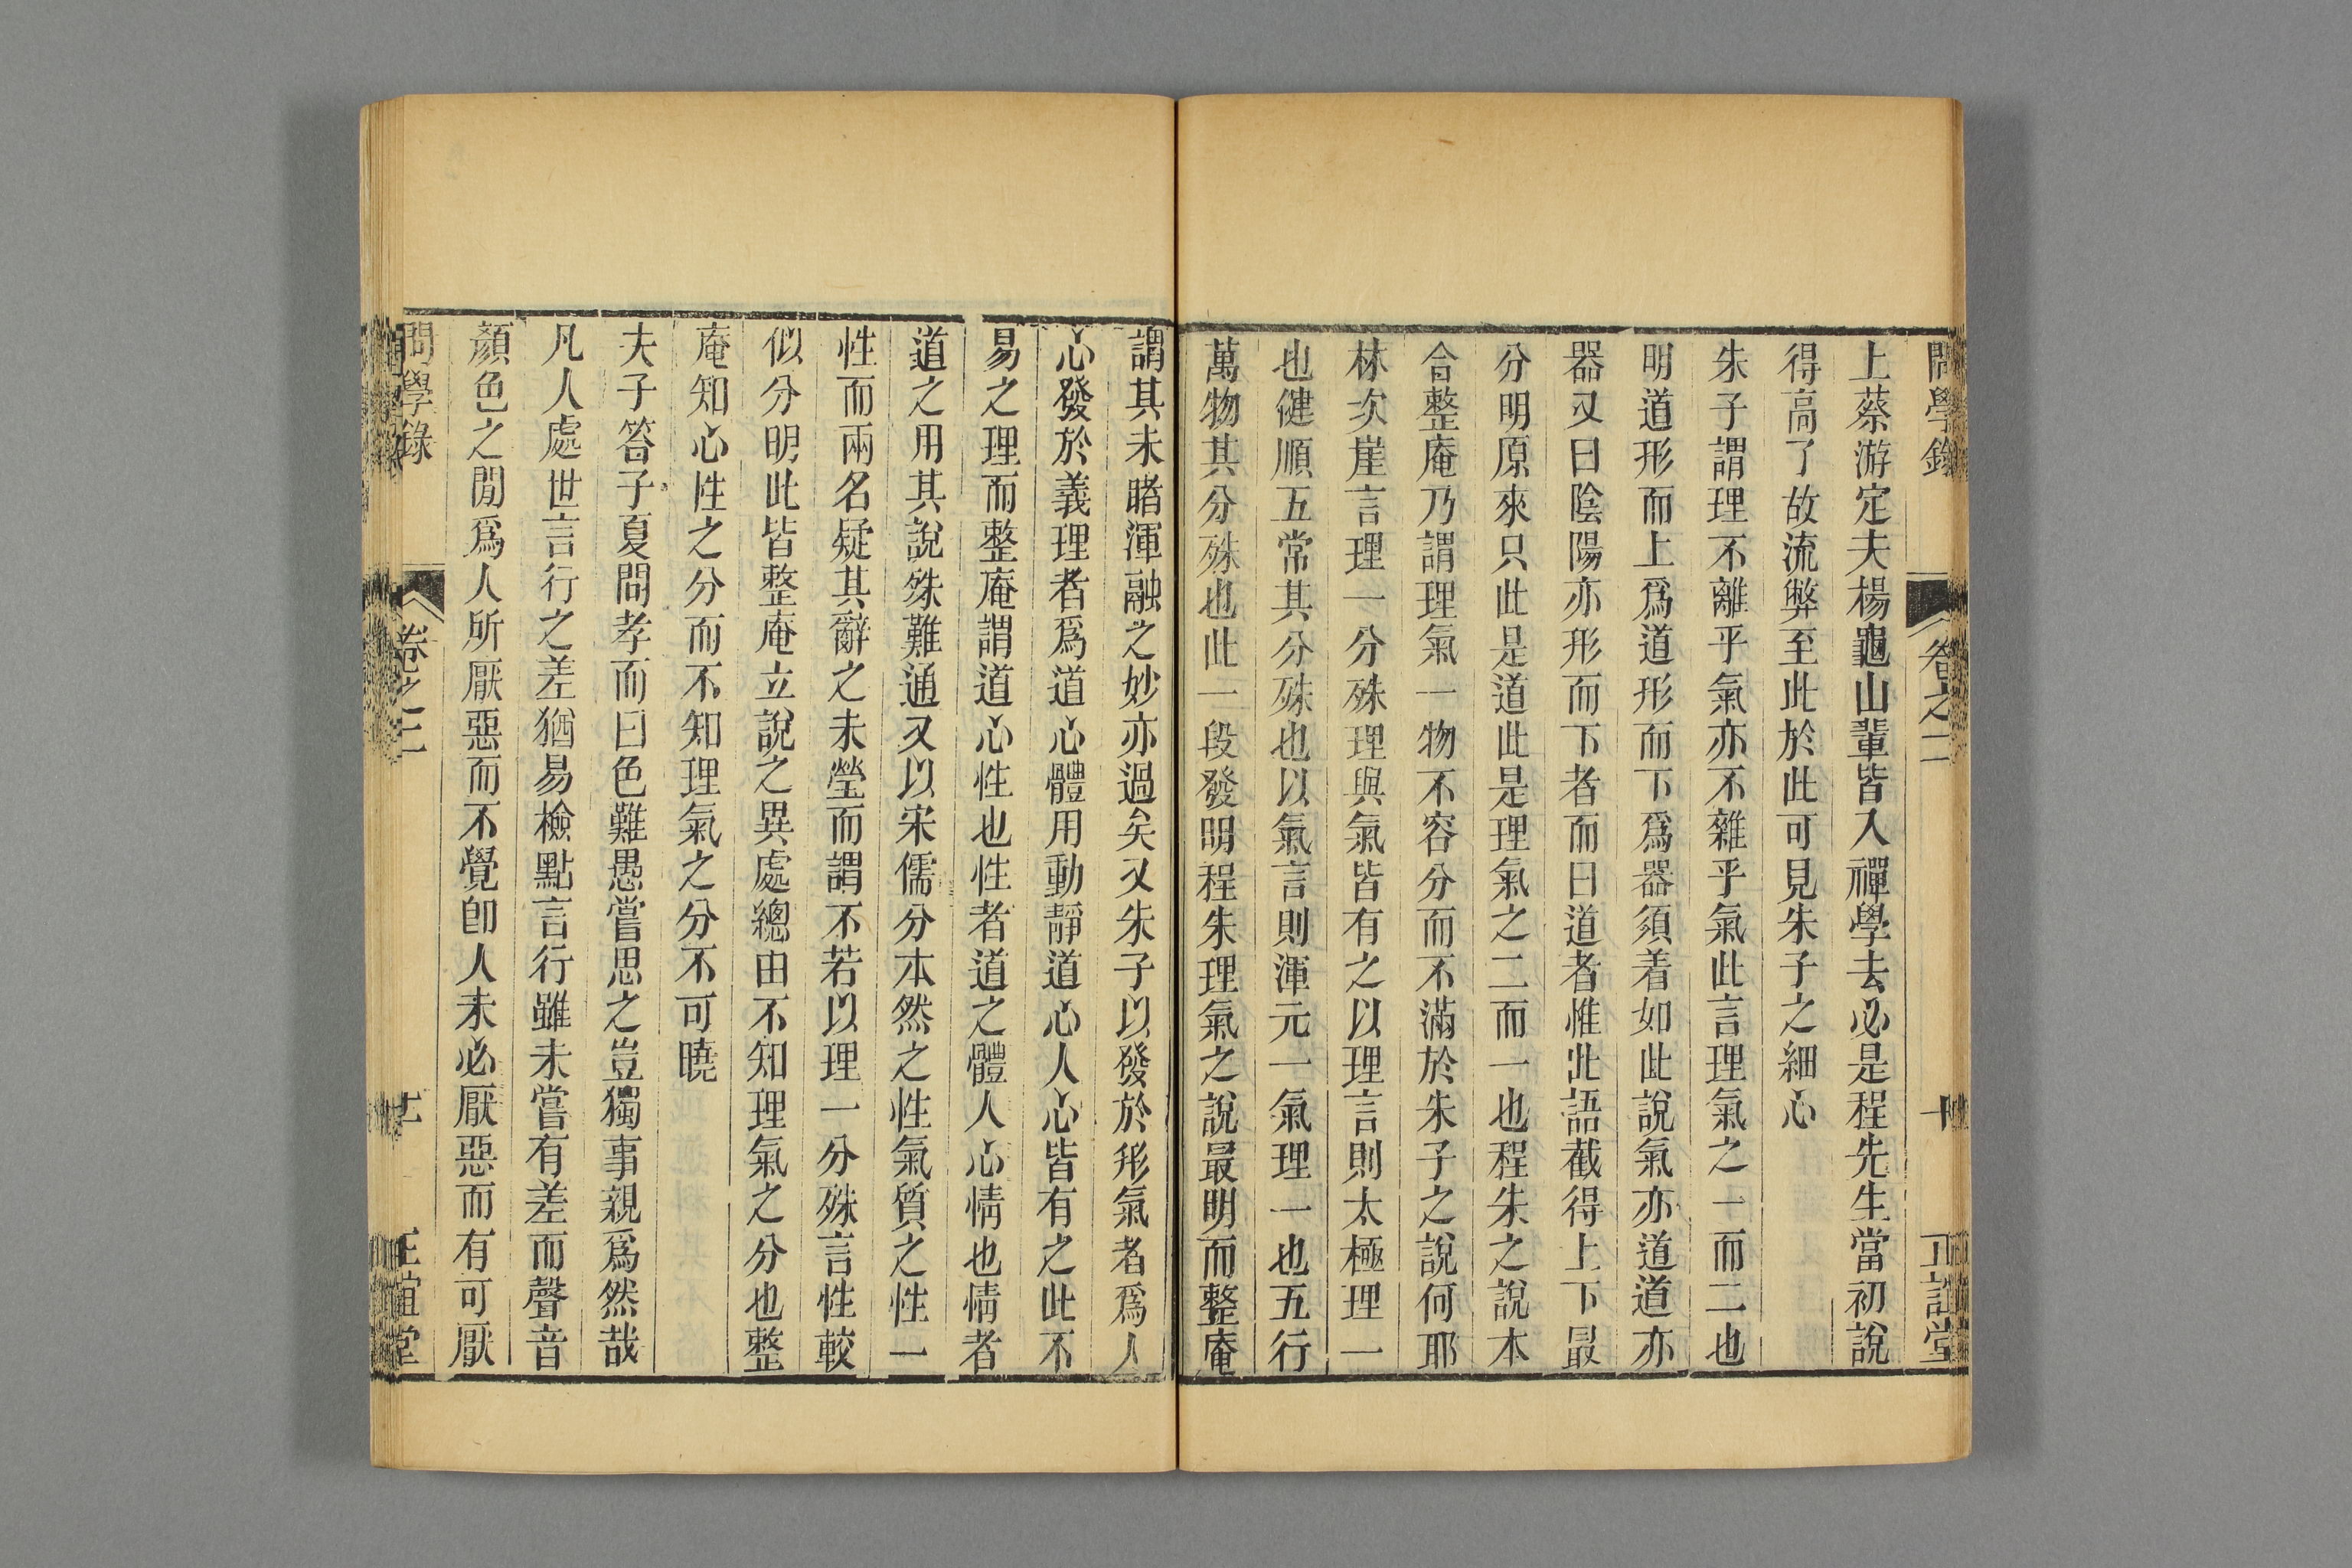 問學錄 卷之二 十 正誼堂
上蔡游定夫楊龜山輩皆入禪學去必是程先生當初說
得高了故流弊至此於此可見朱子之細心
朱子謂理不離乎氣亦不雜乎氣此言理氣之一而二也
明道形而上爲道形而下爲器須着如此說氣亦道道亦
器又曰陰陽亦形而下者而曰道者惟此語截得上下最
分明原來只此是道此是理氣之二而一也程朱之說本
合整庵乃謂理氣一物不容分而不滿於朱子之說何耶
林次崖言理一分殊理與氣皆有之以理言則太極理一
也健順五常其分殊也以氣言則渾元一氣理一也五行
萬物其分殊也此一段發明程朱理氣之說最明而整庵
謂其未睹渾融之妙亦過矣又朱子以發於形氣者爲人
心發於義理者爲道心體用動靜道心人心皆有之此不
易之理而整庵謂道心性也性者道之體人心情也情者
道之用其說殊難通又以宋儒分本然之性氣質之性一
性而兩名疑其辭之未瑩而謂不若以理一分殊言性較
似分明此皆整庵立說之異處總由不知理氣之分也整
庵知心性之分而不知理氣之分不可曉
夫子答子夏問孝而曰色難愚嘗思之豈獨事親爲然哉
凡人處世言行之差猶易檢點言行雖未嘗有差而聲音
顏色之間爲人所厭惡而不覺卽人未必厭惡而有可厭
問學錄 卷之二 十一 正誼堂